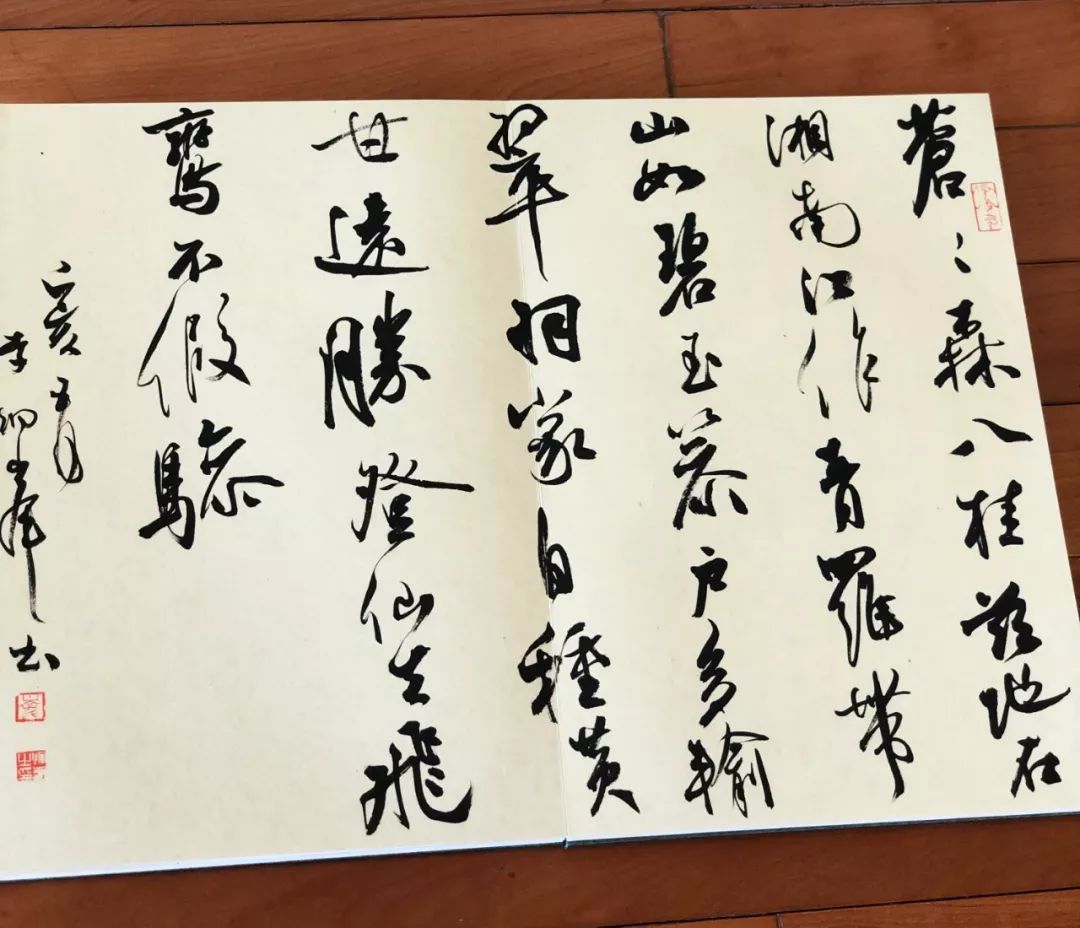 蒼〻森八桂兹地在
湘南江作青羅帶
山如碧玉篸户多輸
翠羽家自種黄
甘遠勝登仙去飛
鸞不假驂
己亥五月
李书